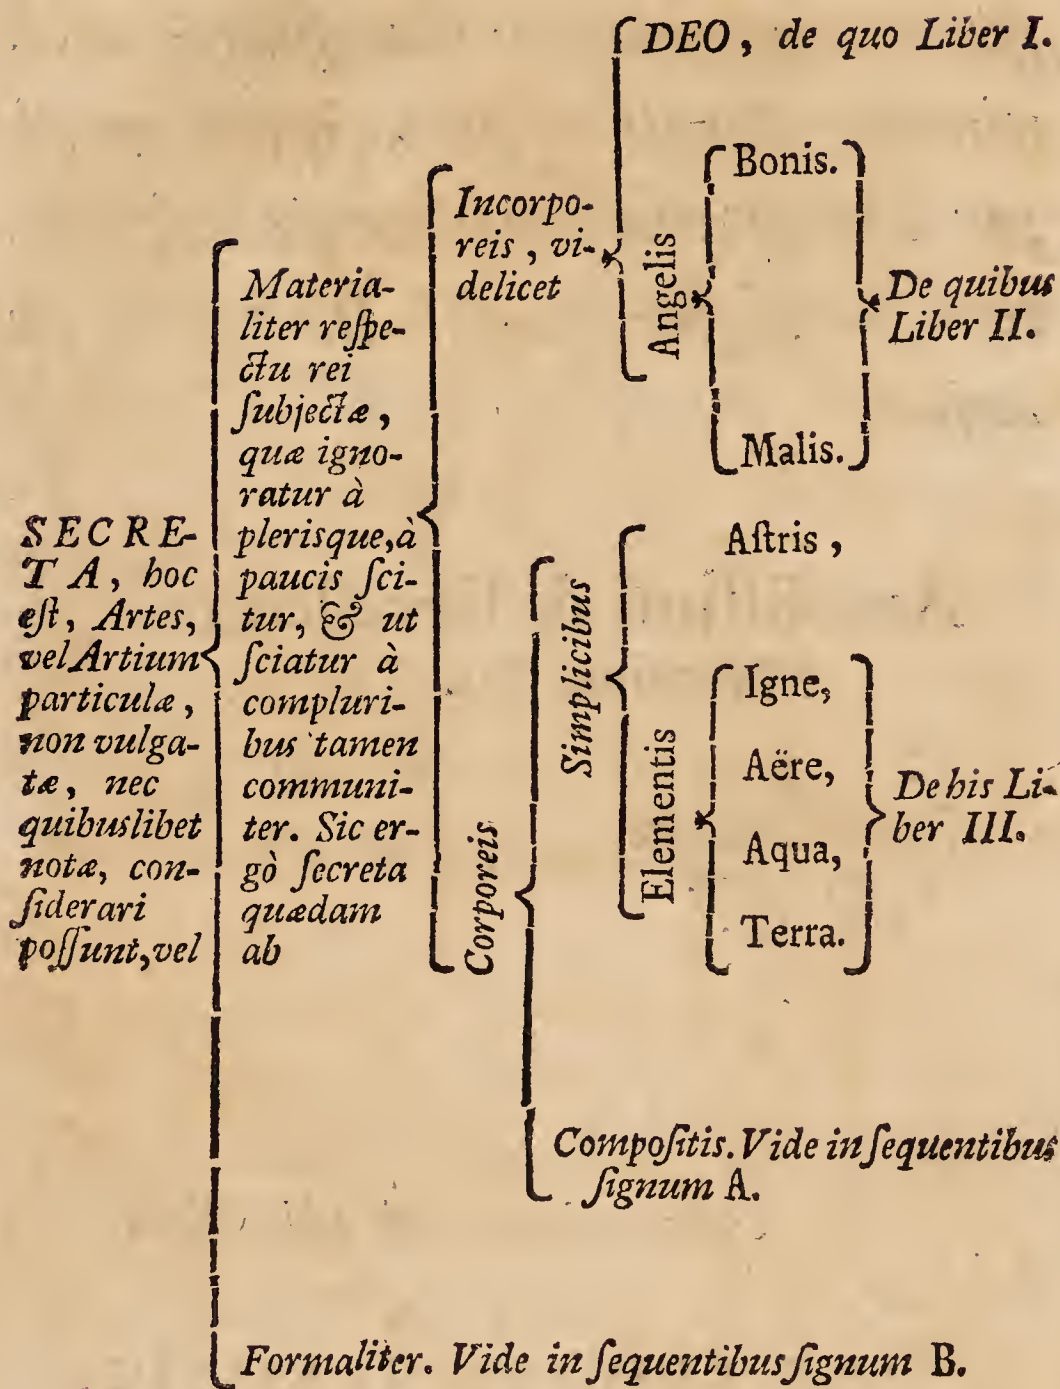 SECRE-
TA, hoc
eſt, Artes,
vel Artium
particulæ,
non vulga-
tæ, nec
quibuslibet
notæ, con-
ſiderari
poſſunt, vel
Materia-
liter reſpe-
ctu rei
ſubjectæ,
quæ igno-
ratur à
plerisque, à
paucis ſci-
tur, & ut
ſciatur à
compluri-
bus tamen
communi-
ter. Sic er-
gò ſecreta
quædam
ab
Incorpo-
reis, vi-
delicet
DEO, de quo Liber I.
Angelis
Bonis.
Malis.
De quibus
Liber II.
Corporeis
Simplicibus
Aſtris,
Elementis
Igne,
Aëre,
Aqua,
Terra.
De his Li-
ber III.
Compoſitis. Vide in ſequentibus
ſignum A.
Formaliter. Vide in ſequentibus ſignum B.